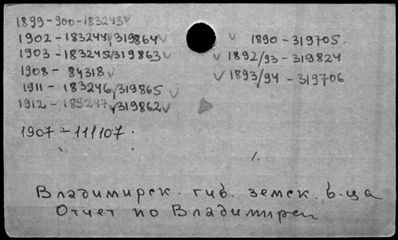 1899-900-183243√
1902-183244,319864√
√ 1890-319705.
1903-183245,319863√
√ 1892/93-319824
1908-84318√
√ 1893/94-319706
1911-183246,319865√
1912-183247,319862√
1907-111107.
1.
Владимирск. губ. земск. б-ца
Отчет по Владимирск